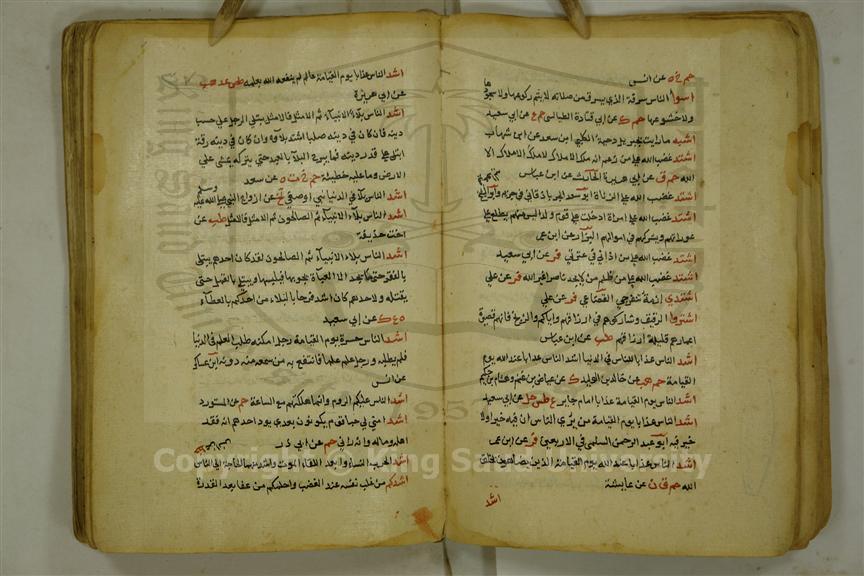 حم ن ه عن انس
اسوأ الناس سرقة الذي يسرق من صلاته لا يتم ركوعها ولا سجودها
ولا خشوعها حم ك عن ابي قتادة الطيالسي حم ع عن ابي سعيد
اشبه ما رايت بجبريل دحية الكلبي ابن سعد عن ابن شهاب
اشتد غضب الله على من زعم انه ملك الاملاك لا ملك الاملاك الا
الله حم ق عن ابي هريرة الحارث عن ابن عباس
اشتد غضب الله على الزناة ابو سعد الجرباذقاني في جزئه وابو الشيخ
اشتد غضب الله على امرأة ادخلت على قوم ولدا ليس منهم يطلع على
عوراتهم ويشركهم في اموالهم البزار عن ابن عمر
اشتد غضب الله على من اذاني في عترتي فر عن ابي سعيد
اشتد غضب الله على من ظلم من لا يجد ناصرا غير الله فر عن علي
اشتدي ازمة تنفرجي القضاعي فر عن علي
اشتروا الرقيق وشاركوهم في ارزاقهم واياكم والزنج فانهم قصيرة
اعمارهم قليلة ارزاقهم طب عن ابن عباس
اشد الناس عذابا للناس في الدنيا اشد الناس عذابا عند الله يوم
القيامة حم هب عن خالد بن الوليد ك عن عياض بن غنم وهشام بن حكيم
اشد الناس يوم القيامة عذابا امام جابر ع طس حل عن ابي سعيد
اشد الناس عذابا يوم القيامة من يري الناس ان فيه خيرا ولا
خير فيه ابو عبد الرحمن السلمي في الاربعين فر عن ابن عمر
اشد الناس عذابا عند الله يوم القيامة الذين يضاهون بخلق
الله حم ق ن عن عايشة
اشد
اشد الناس عذابا يوم القيامة عالم لم ينفعه الله بعلمه طص عد هب
عن ابي هريرة
اشد الناس بلاء الانبياء ثم الامثل فالامثل يبتلى الرجل على حسب
دينه فان كان في دينه صلبا اشتد بلاؤه وان كان في دينه رقة
ابتلي على قدر دينه فما يبرح البلاء بالعبد حتى يتركه يمشي على
الارض وما عليه خطيئة حم خ ت ه عن سعد
اشد الناس بلاء في الدنيا نبي او صفي تخ عن ازواج النبي صلى الله عليه وسلم
اشد الناس بلاء الانبياء ثم الصالحون ثم الامثل فالامثل طب عن
اخت حذيفة
اشد الناس بلاء الانبياء ثم الصالحون لقد كان احدهم يبتلى
بالفقر حتى ما يجد الا العباة يجوبها فيلبسها ويبتلى بالقمل حتى
يقتله ولاحدهم كان اشد فرحا بالبلاء من احدكم بالعطاء
ه ع ك عن ابي سعيد
اشد الناس حسرة يوم القيامة رجل امكنه طلب العلم في الدنيا
فلم يطلبه ورجل علم علما فانتفع به من سمعه منه دونه ابن عساكر
عن انس
اشد الناس عليكم الروم وانما هلكتهم مع الساعة حم عن المستورد
اشد امتي لي حبا قوم يكونون بعدي يود احدهم انه فقد
اهله وماله وانه راني حم عن ابي ذر
اشد الحرب النساء وابعد اللقاء الموت واشد منهما الحاجة الى الناس
اشدكم من غلب نفسه عند الغضب واحلمكم من عفا بعد القدرة
Copyright © King Saud University